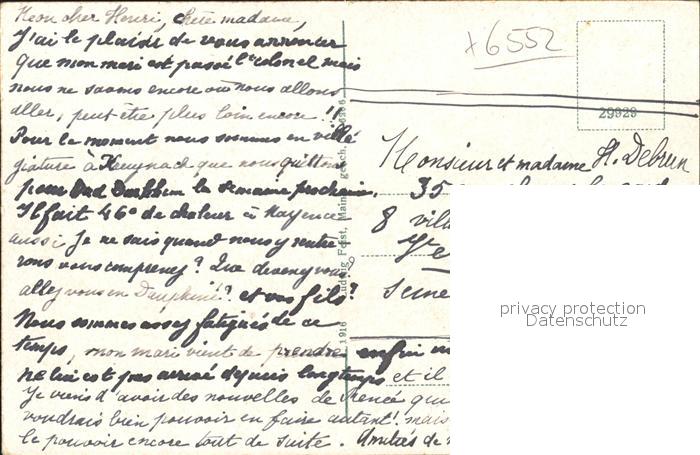 Mon cher Henri, chère madame,
J'ai le plaisir de vous annoncer
que mon mari est passé Lt colonel mais
nous ne savons encore où nous allons
aller, peut-être plus loin encore !!
Pour le moment nous sommes en villé
giature à que nous quittons
pour la semaine prochaine.
Il fait 46° de chaleur à Mayence
aussi je ne sais quand nous y rentre
rons vous comprenez? Que devenez vous?
allez vous en Dauphiné? et vos fils?
Nous sommes assez fatigués de ce
temps, mon mari vient de prendre enfin
ne lui est pas arrivé depuis longtemps et il
Je viens d'avoir des nouvelles de
voudrais bien pouvoir en faire autant! mais
le pouvoir encore tout de suite. Amitiés de
+6552
29929
Monsieur et madame H. Debrun
35
8 vill
Seine
Ludwig Feist, Mainz
1916
privacy protection
Datenschutz